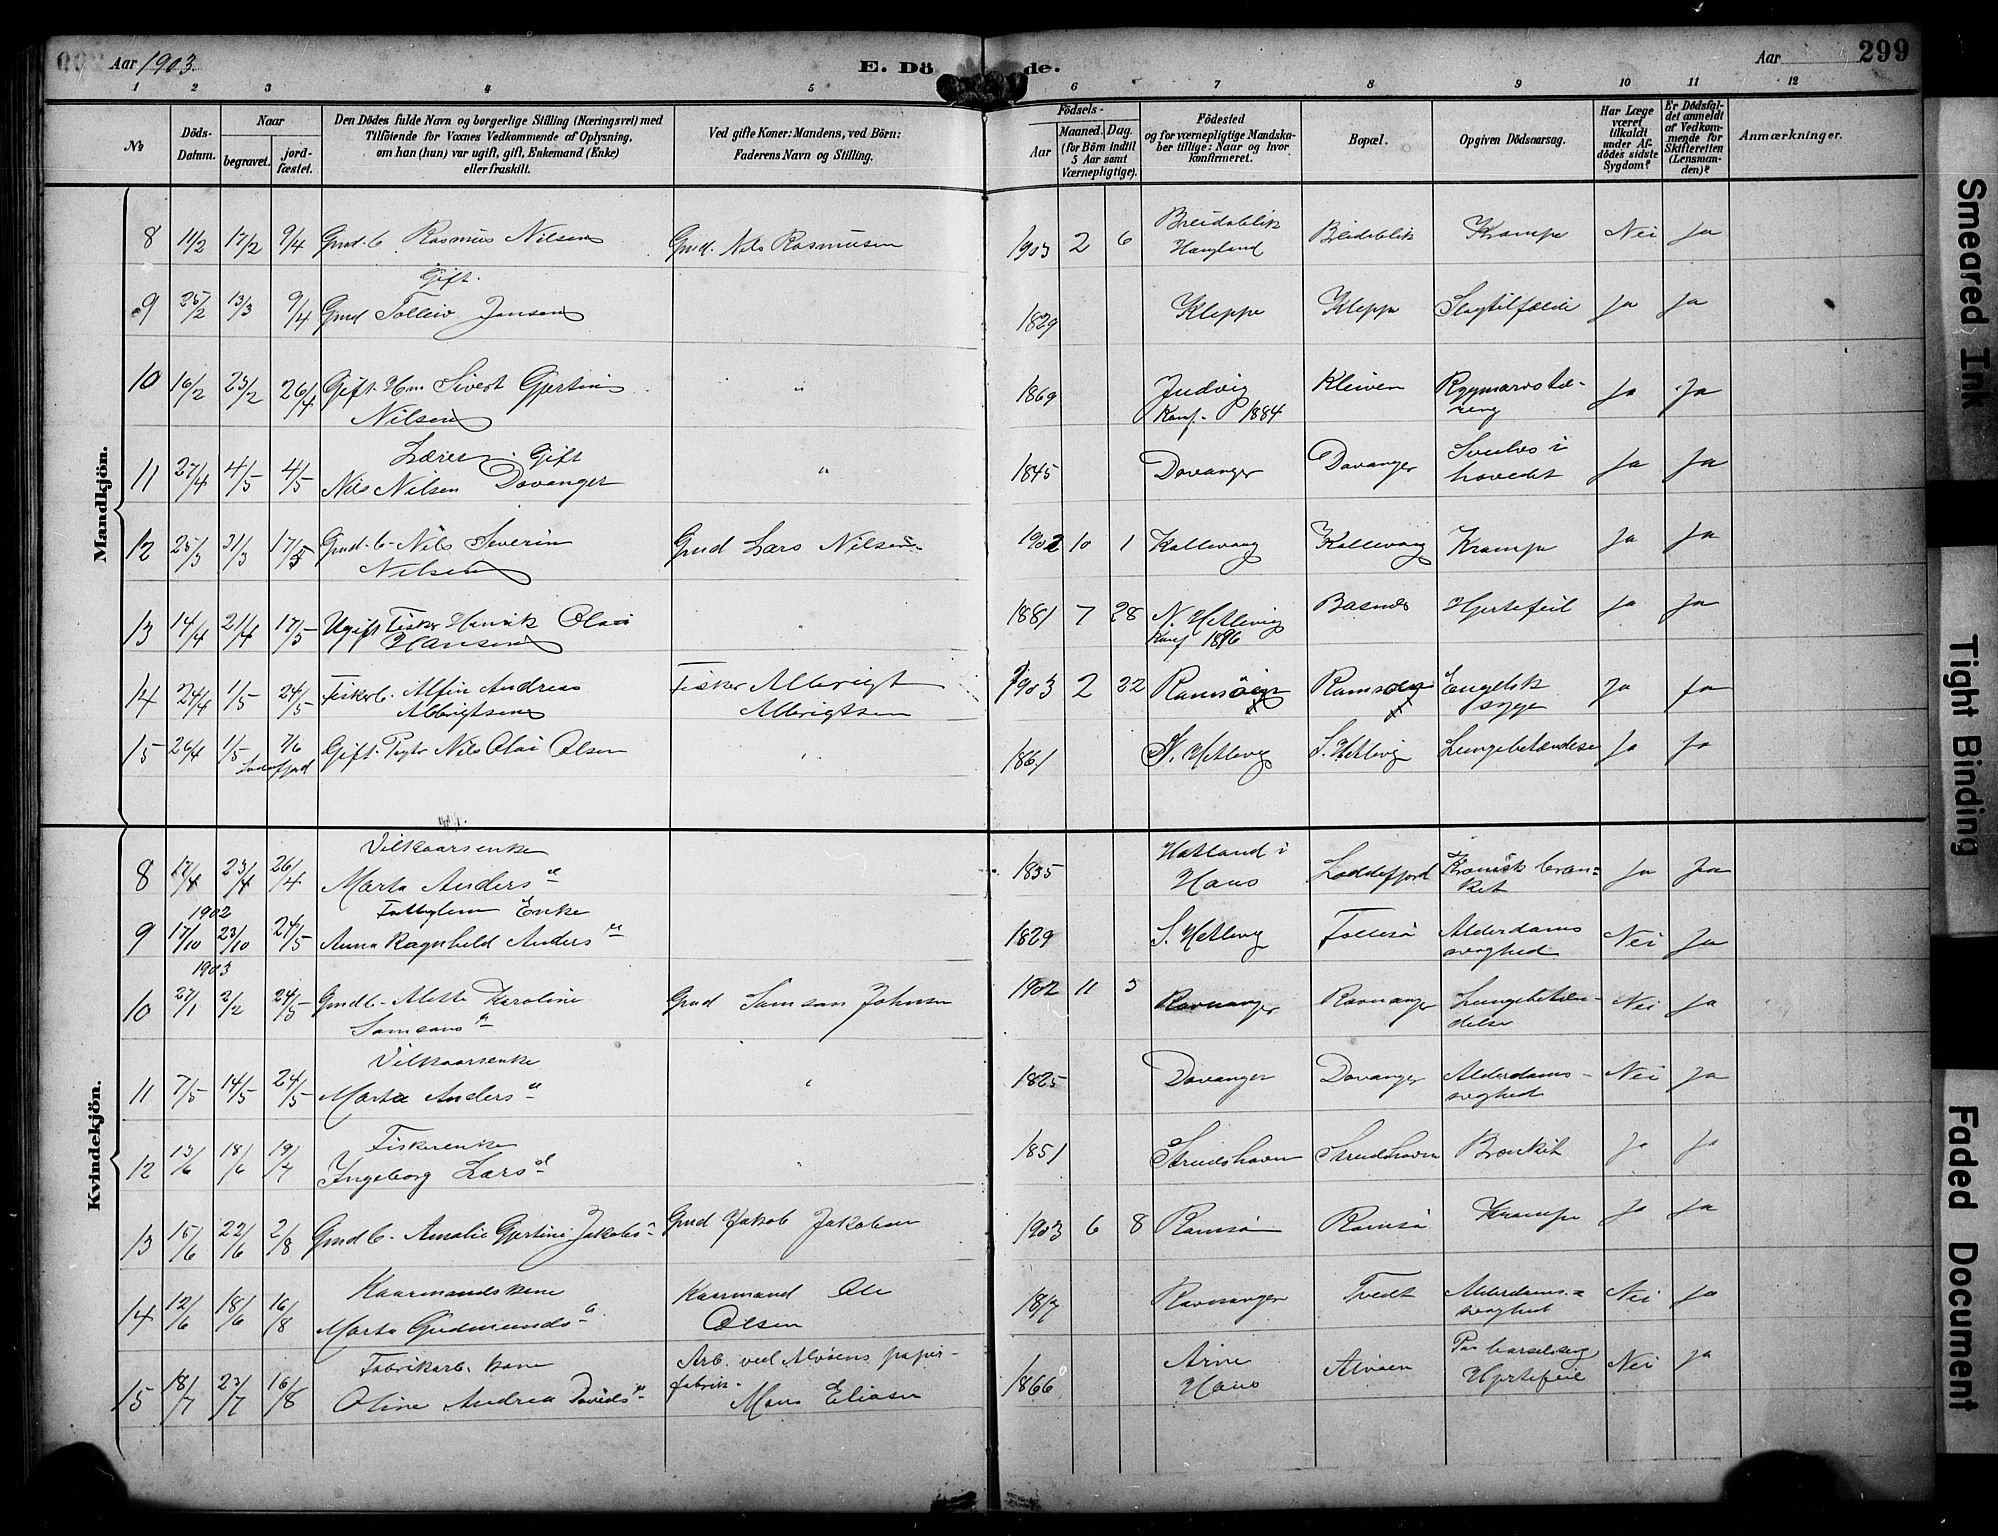 Aar 1903. E. Dö de. Aar 299
1 2 3 4 5 6 7 8 9 10 11 12
№
Döds-Datum.
Naar
begravet. jord-fæstet.
Den Dödes fulde Navn og borgerlige Stilling (Næringsvei) med
Tilföiende for Voxnes Vedkommende af Oplysning,
om han (hun) var ugift, gift, Enkemand (Enke)
eller fraskilt.
Ved gifte Koner: Mandens, ved Börn:
Faderens Navn og Stilling.
Födsels-
Aar
Maaned. Dag.
(for Börn indtil
5 Aar samt
Værnepligtige).
Födested
og for værnepligtige Mandska-
ber tillige: Naar og hvor
konfirmeret.
Bopæl.
Opgiven Dödsaarsag.
Har Læge
været
tilkaldt
under Af-
dödes sidste
Sygdom?
Er Dödsfal-
det anmeldt
af Vedkom-
mende for
Skifteretten
(Lensman-
den)?
Anmærkninger.
Mandkjön.
Breidablik
8 11/2 17/2 9/4 Gmd. b. Rasmus Nilsen Gmd. Nils Rasmusen 1903 2 6 Haugland Breidablik Krampe Nei Ja
Gift.
9 25/2 13/3 9/4 Gmd Tolleiv Jansen 1829 Kleppe Kleppe Slagtilfælde Ja Ja
10 16/2 23/2 26/4 Gift. Hm Sivert Gjertin " 1869 Judvig Kleiven Rygmarvstæ- Ja Ja
Nilsen Konf. 1884 ring
Lærer. Gift
11 27/4 4/5 4/5 Nils Nilsen Davanger " 1845 Davanger Davanger Svulst i Ja Ja
hovedet
12 25/3 31/3 17/5 Gmd. b. Nils Severin Gmd Lars Nilsen 1902 10 1 Kollevaag Kollevaag Krampe Ja Ja
Nilsen
13 14/4 21/4 17/5 Ugift Fisker Henrik Olai 1881 7 28 N. Hetlevig Hjertefeil Ja Ja
Hansen Konf 1896
14 24/4 1/5 24/5 Fiskerb. Alfin Andreas Fisker Albrigt 1903 2 22 Ramsöen Ramsöen Engelsk Ja Ja
Albrigtsen Albrigtsen syge
15 26/4 1/5 7/6 Gift. Nils Olai Olsen 1861 S. Hetlevig S. Hetlevig Lungebetændelse Ja Ja
Kvindekjön.
Vilkaarsenke Hatland i
8 17/4 23/4 26/4 Marta Andersd 1835 Haus Loddefjord Kronisk bron- Ja Ja
kit
1902 Enke
9 17/10 23/10 24/5 Anna Ragnhild Andersd 1829 S. Hetlevig Follesö Alderdoms Nei Ja
svaghed
1903
10 27/1 2/2 24/5 Gmdb. Alette Karoline Gmd Samson Johnsen 1902 11 5 Ravnanger Ravnanger Lungebetæn- Nei Ja
Samsonsd delse
Vilkaarsenke
11 7/5 14/5 24/5 Marta Andersd " 1825 Davanger Davanger Alderdoms- Nei Ja
svaghed
Fiskerenke
12 13/6 18/6 19/7 Ingeborg Larsd 1851 Strudshavn Strudshavn Bronkit Ja Ja
13 15/6 22/6 2/8 Gmdb. Amalie Gjertine Jakobsd Gmd Jakob Jakobsen 1903 6 8 Ramsö Ramsö Krampe Ja Ja
Kaarmandskone Kaarmand Ole
14 12/6 18/6 16/8 Marta Gudmundsd Olsen 1817 Ravnanger Tvedt Alderdoms- Nei Ja
svaghed
Fabrikarb. kone Arb. ved Alvöens papir- Arne Paa barselseng
15 18/7 23/7 16/8 Oline Andrea Davidsd fabrik. Mons Eliasen 1866 Haus Alvöen Hjertefeil Nei Ja
Smeared Ink
Tight Binding
Faded Document